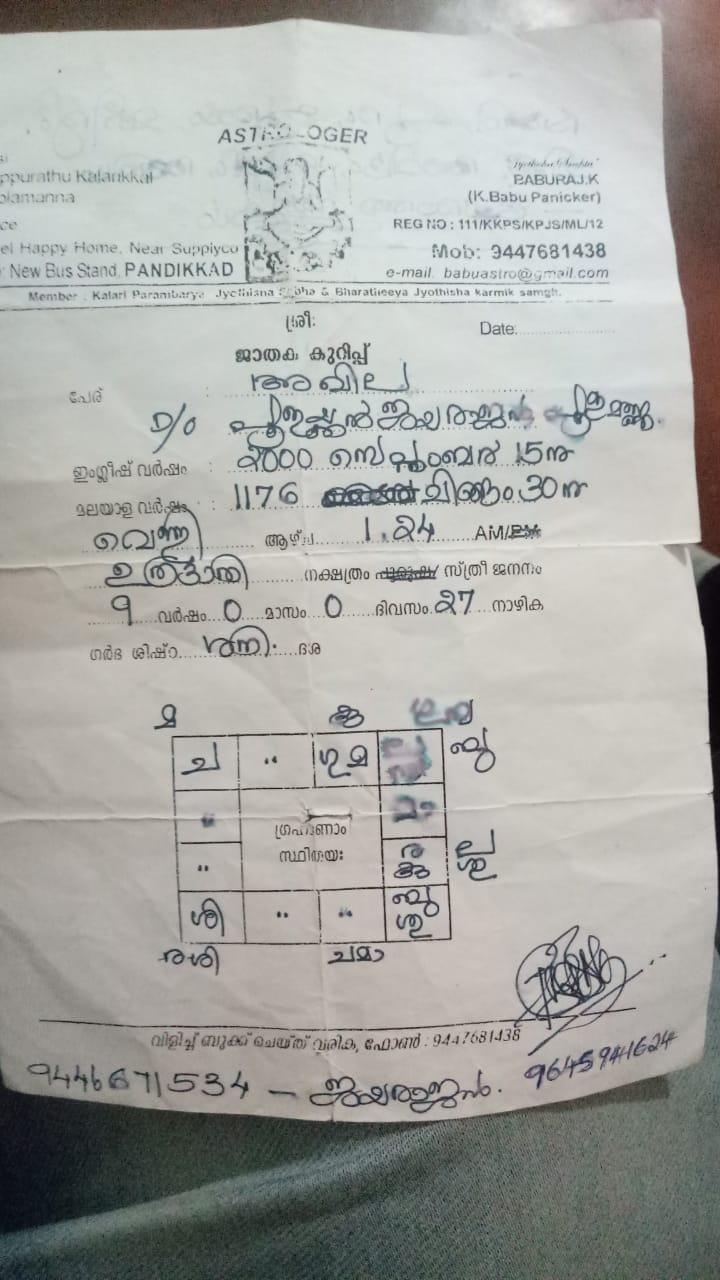 ASTROLOGER
ppurathu Kalarikkal
olamanna
ce
el Happy Home, Near Suppiyco
New Bus Stand, PANDIKKAD
BABURAJ.K
(K.Babu Panicker)
REG NO : 111/KKPS/KPJS/ML/12
Mob: 9447681438
e-mail. babuastro@gmail.com
Member : Kalari Parambarya Jyothisha Sabha & Bharatheeya Jyothisha karmik samgh.
ശ്രീ:
Date:
ജാതക കുറിപ്പ്
പേര് : അഖില
D/O ജയരാജൻ
ഇംഗ്ലീഷ് വർഷം : 2000 സെപ്റ്റംബർ 15നു
മലയാള വർഷം : 1176 ചിങ്ങം 30നു
വെള്ളി ആഴ്ച 1.24 AM/PM
ഉത്രട്ടാതി നക്ഷത്രം പുരുഷ/ സ്ത്രീ ജനനം
9 വർഷം 0 മാസം 0 ദിവസം 27 നാഴിക
ഗർഭ ശിഷ്ഠം ശനി ദശ
മ കു
ച " ഗു മ ബു
മ
ഗ്രഹാണാം
സ്ഥിതയഃ
" ര കു ല ശു
ശി " " ബു ശു
രശി ചമാ
വിളിച്ച് ബുക്ക് ചെയ്ത് വരിക, ഫോൺ : 9447681438
9446671534 – ജയരാജൻ. 9645941624